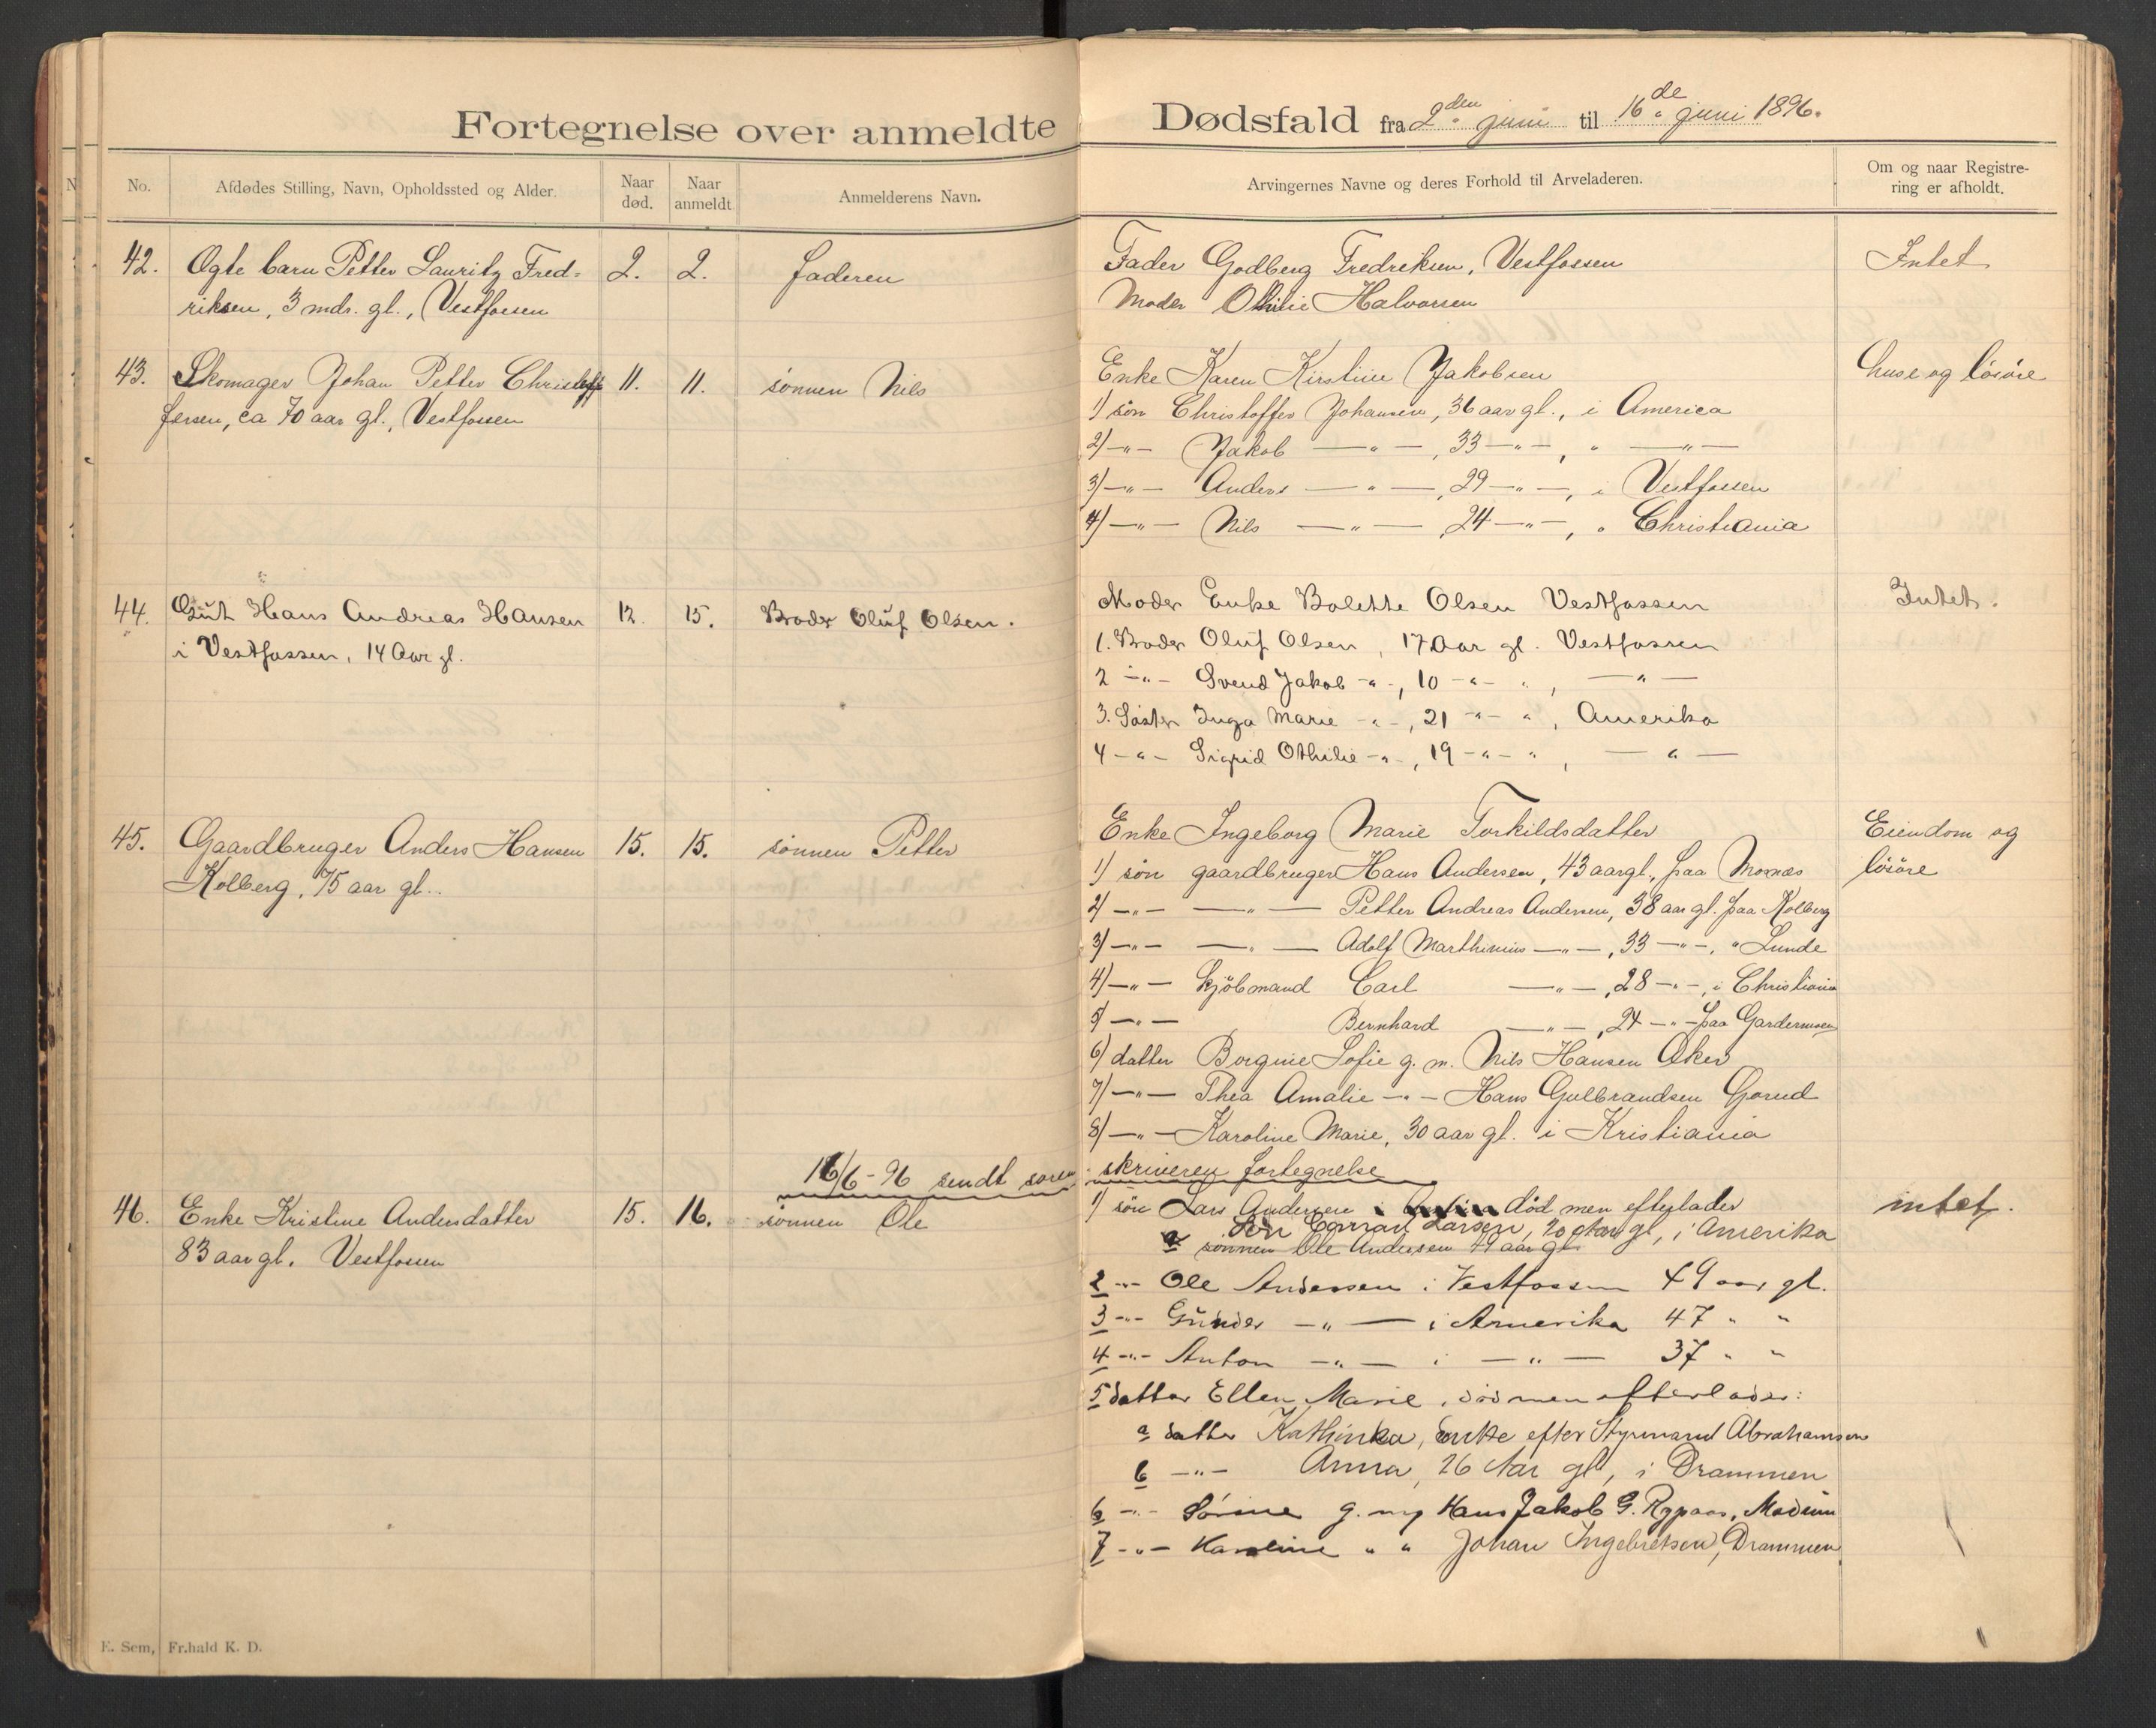 Fortegnelse over anmeldte Dødsfald fra 2den juni til 16de juni 1896.
No.
Afdødes Stilling, Navn, Opholdssted og Alder.
Naar død.
Naar anmeldt.
Anmelderens Navn.
Arvingernes Navne og deres Forhold til Arveladeren.
Om og naar Registre-
ring er afholdt.
42. Ægte barn Petter Lauritz Fred- 2. 2. faderen Fader Godberg Fredriksen, Vestfossen Intet
riksen, 3 mdr. gl., Vestfossen Moder Othilie Halvorsen
43. Skomager Johan Petter Christoff 11. 11. sønnen Nils Enke Karen Kirstine Jakobsen huse og løsøre
fersen, ca 70 aar gl., Vestfossen 1) søn Christoffer Johansen, 36 aar gl., i America
2) -"- Jakob -"-, 33 -"-, " -"-
3) -"- Anders -"-, 29 -"-, i Vestfossen
4) -"- Nils -"- 24 -"-, " Christiania
44. Gut Hans Andreas Hansen 12. 15. Broder Oluf Olsen. Moder Enke Bolette Olsen Vestfossen Intet.
i Vestfossen, 14 Aar gl. 1. Broder Oluf Olsen, 17 Aar gl. Vestfossen
2 -"- Svend Jakob -"-, 10 -"- ", -"-
3. Søster Inga Marie -"-, 21 -"- ", Amerika
4 -"- Sigrid Othilie -"-, 19 -"- ", -"-
45. Gaardbruger Anders Hansen 15. 15. sønnen Petter Enke Ingeborg Marie Torkildsdatter Eiendom og
Kolberg, 75 aar gl.. 1) søn gaardbruger Hans Andersen, 43 aar gl., paa løsøre
2) -"- -"- Petter Andreas Andersen, 38 aar gl. paa Kolberg
3) -"- -"- Adolf Marthinius -"-, 33 -"-, " Lunde
4) -"- kjøbmand Carl -"-, 28 -"-, i Christiania
5) -"- Bernhard -"-, 24 -"- paa Gardermoen
6) datter Borgine Sofie g. m. Nils Hansen Aker
7) -"- Thea Amalie -"- Hans Gulbrandsen Gorud
8) -"- Karoline Marie, 30 aar gl. i Kristiania
16/6-96 sendt soren skriveren fortegnelse
46. Enke Kristine Andersdatter 15. 16. sønnen Ole 1) søn Lars Andersen død men efterlader intet.
83 aar gl. Vestfossen Søn Larsen, 20 Aar gl, i Amerika
a sønnen Ole Andersen 49 aar gl
2 -"- Ole Andersen i Vestfossen 49 aar gl.
3 -"- Gunder -"- i Amerika 47 " "
4 -"- Anton -"- i -"- 37 " "
5 datter Ellen Marie, død men efterlader:
a datter Kathinka, Enke efter Styrmand Abrahamsen
b -"- Anna, 26 Aar gl, i Drammen
6 -"- Sørine g. m. Hans Jakob G. Rypaas, Modum
7 -"- Karoline " " Johan Ingebretsen, Drammen
E. Sem, Fr.hald K. D.